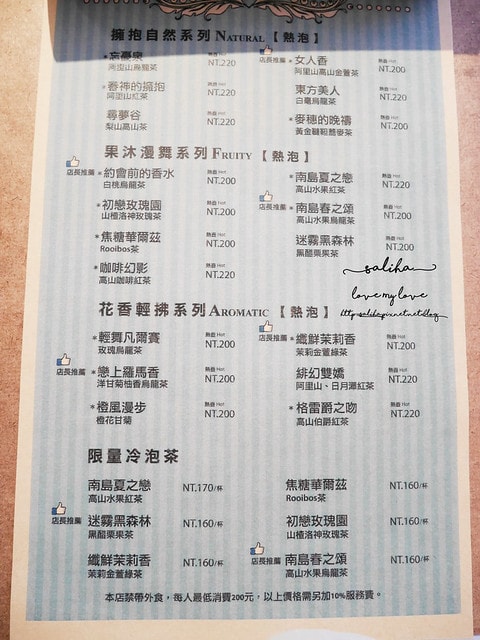 擁抱自然系列 NATURAL【熱泡】
*忘憂泉 熱壺 Hot
阿里山烏龍茶 NT.220
*眷神的擁抱 熱壺 Hot
阿里山紅茶 NT.220
尋夢谷 熱壺 Hot
梨山高山茶 NT.220
店長推薦 *女人香 熱壺 Hot
阿里山高山金萱茶 NT.200
東方美人 熱壺 Hot
白毫烏龍茶 NT.220
*麥穗的晚禱 熱壺 Hot
黃金韃靼蕎麥茶 NT.200
果沐漫舞系列 FRUITY【熱泡】
店長推薦 *約會前的香水 熱壺 Hot
白桃烏龍茶 NT.200
*初戀玫瑰園 熱壺 Hot
山楂洛神玫瑰茶 NT.200
*焦糖華爾茲 熱壺 Hot
Rooibos茶 NT.200
*咖啡幻影 熱壺 Hot
高山咖啡紅茶 NT.220
*南島夏之戀 熱壺 Hot
高山水果紅茶 NT.220
店長推薦 *南島春之頌 熱壺 Hot
高山水果烏龍茶 NT.200
迷霧黑森林 熱壺 Hot
黑醋栗果茶 NT.200
saliha
love my love
花香輕拂系列 AROMATIC【熱泡】
*輕舞凡爾賽 熱壺 Hot
玫瑰烏龍茶 NT.200
店長推薦 *戀上羅馬香 熱壺 Hot
洋甘菊柚香烏龍茶 NT.200
*橙風漫步 熱壺 Hot
橙花甘菊 NT.200
店長推薦 *纖鮮茉莉香 熱壺 Hot
茉莉金萱綠茶 NT.200
緋幻雙嬌 熱壺 Hot
阿里山、日月潭紅茶 NT.220
*格雷爵之吻 熱壺 Hot
高山伯爵紅茶 NT.220
限量冷泡茶
南島夏之戀 NT.170/杯
高山水果紅茶
店長推薦 迷霧黑森林 NT.160/杯
黑醋栗果茶
纖鮮茉莉香 NT.160/杯
茉莉金萱綠茶
焦糖華爾茲 NT.160/杯
Rooibos茶
初戀玫瑰園 NT.160/杯
山楂洛神玫瑰茶
店長推薦 南島春之頌 NT.160/杯
高山水果烏龍茶
本店禁帶外食，每人最低消費200元，以上價格需另加10%服務費。